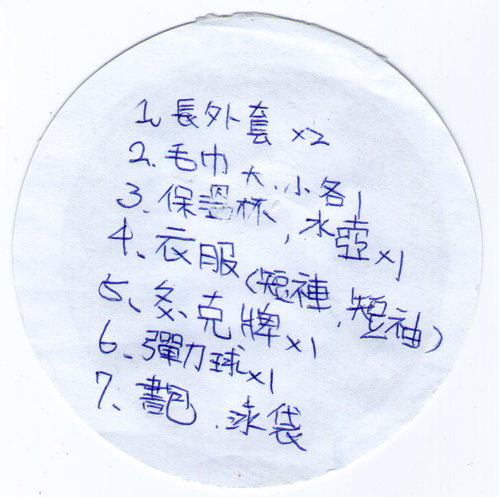 1、長外套 x2
2、毛巾 大、小各1
3、保溫杯、水壺x1
4、衣服(短褲、短袖)
5、克牌x1
6、彈力球x1
7、書包、泳袋